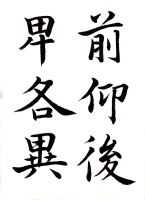 前仰後
卑各異